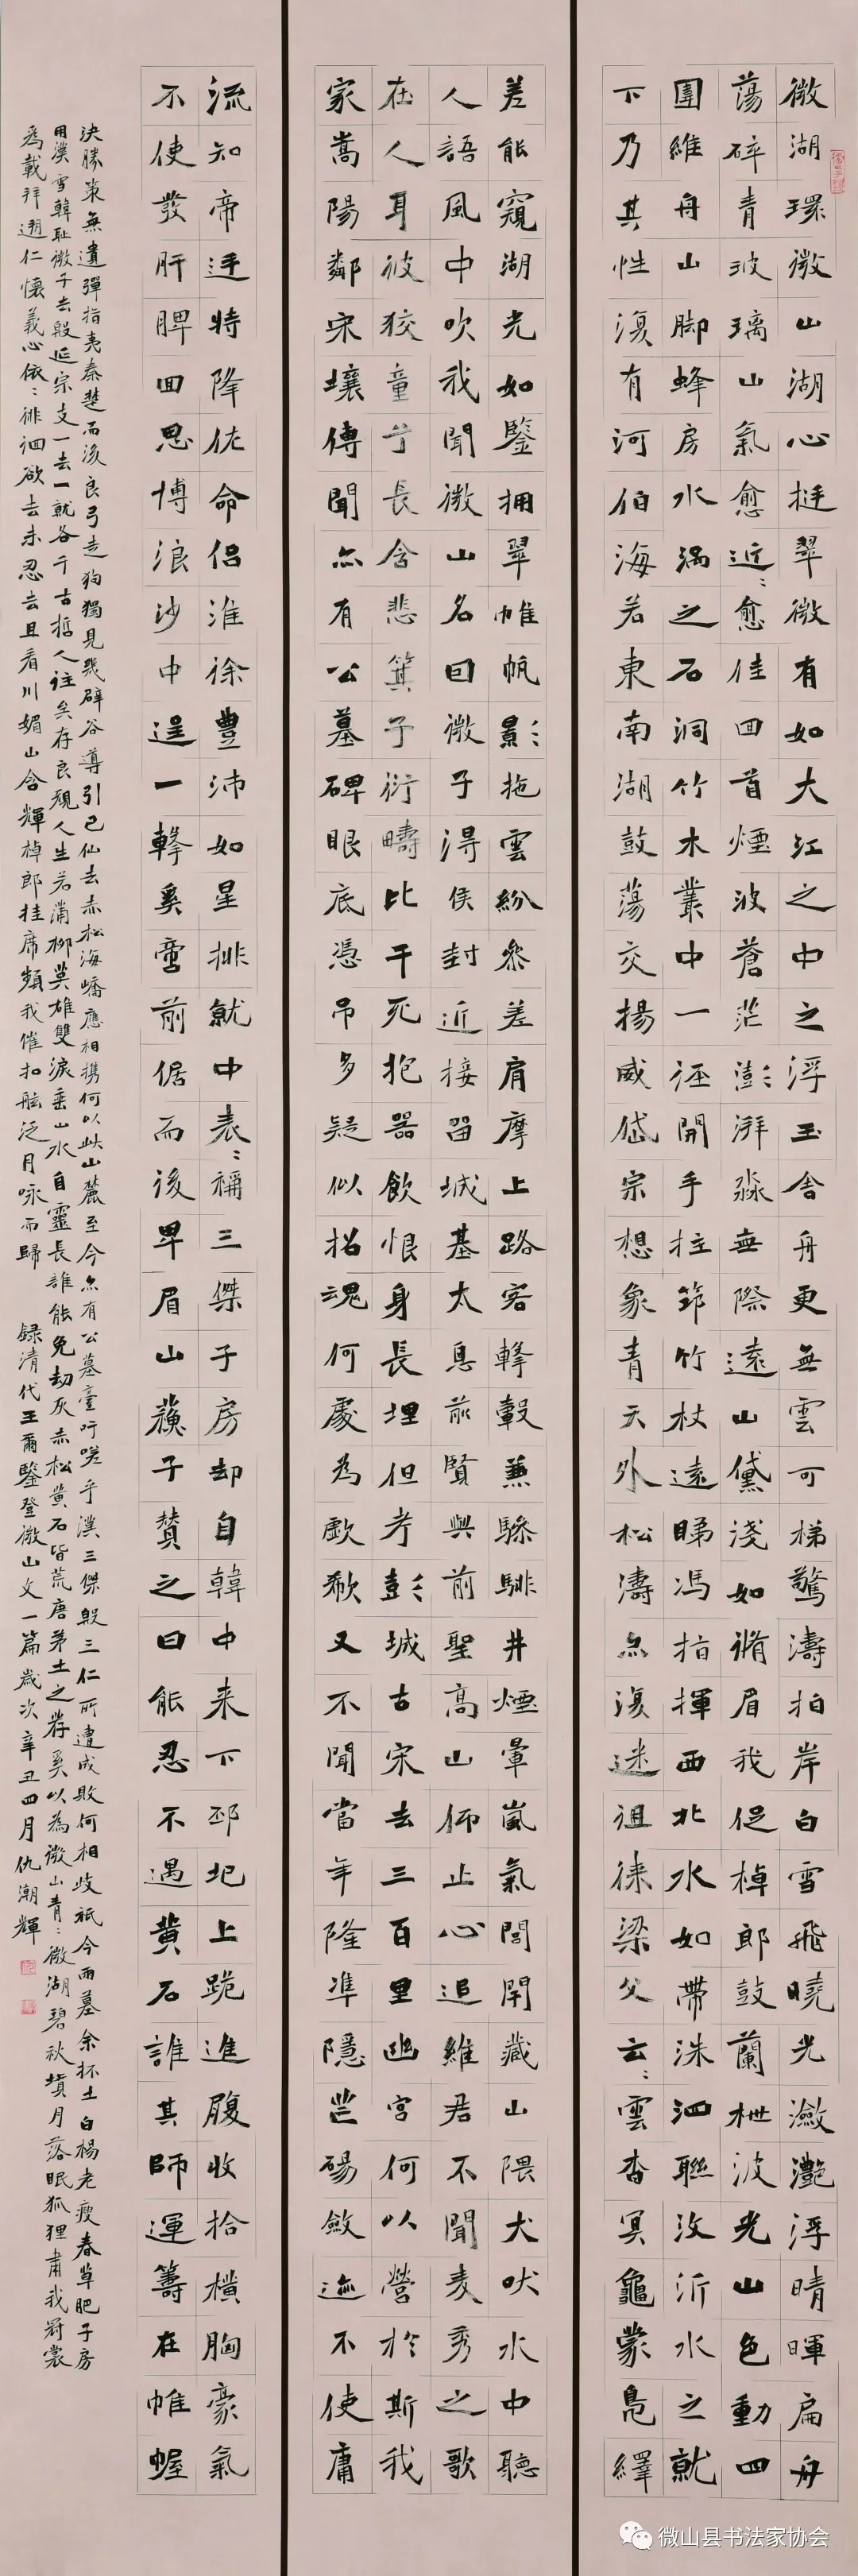 微湖環微山湖心挺翠微有如大江之中之浮玉舍舟更無雲可梯驚濤拍岸白雪飛曉光瀲灔浮晴暉扁舟
蕩碎青玻璃山氣愈近〻愈佳回首煙波蒼茫澎湃淼無際遠山黛淺如脩眉我促棹郎鼓蘭枻波光山色動四
圍維舟山腳蜂房水渦之石洞竹木叢中一徑開手拄筇竹杖遠睇馮指揮西北水如帶洙泗聯汶沂水之就
下乃其性湏有河伯海若東南湖鼓蕩交揚威岱宗想象青天外松濤亦復迷徂徠梁父云〻雲杳冥龜蒙鳧繹
差能窺湖光如鑒拥翠帷帆影〻拖雲紛參差肩摩上路客轂兼驂騑井煙暈嵐氣閭閈藏山隈犬吠水中聽
人語風中吹我聞微山名回微子淂侯封近接畱城基太息前賢與前聖高山仰止心追維君不聞麦秀之歌
在人耳彼狡童兮長含悲箕子衍疇比干死抱器飲恨身長埋但考彭城古宋去三百里幽宮何以營於斯我
家嵩陽鄰宋壤傳聞亦有公墓碑眼底憑吊多疑似招魂何處為歔欷又不聞當年隆準隱芒碭斂迹不使庸
流知帝運特隆佐命侶淮徐豐沛如星排就中表〻稱三傑子房却自韓中来下邳圯上跪進履收拾橫胸豪氣
不使發肝脾回思博浪沙中逞一擊奚啻前倨而後卑眉山蘇子贊之曰能忍不遇黃石誰其師運籌在帷幄
決勝策無遺彈指夷秦楚而後良弓走狗獨見幾辟谷導引已仙去赤松海嶠應相攜何以此山麓至今亦有公墓臺吁嗟乎漢三傑殷三仁所遭成敗何相歧祇今兩墓余抔土白楊老瘦春草肥子房
用漢雪韓耻微子去殷延宗支一去一就各千古哲人往矣存良規人生若蒲柳英雄雙淚垂山水自靈長誰能免劫灰赤松黃石皆荒唐茅土之存奚以為微山青〻微湖碧秋墳月落眠狐狸肅我冠裳
為載拜遡仁懷義心依〻徘徊欲去未忍去且看川媚山含輝棹郎挂席頻我催扣舷泛月咏而歸 録清代王爾鑒登微山文一篇歲次辛丑四月仇潮輝
微山县书法家协会